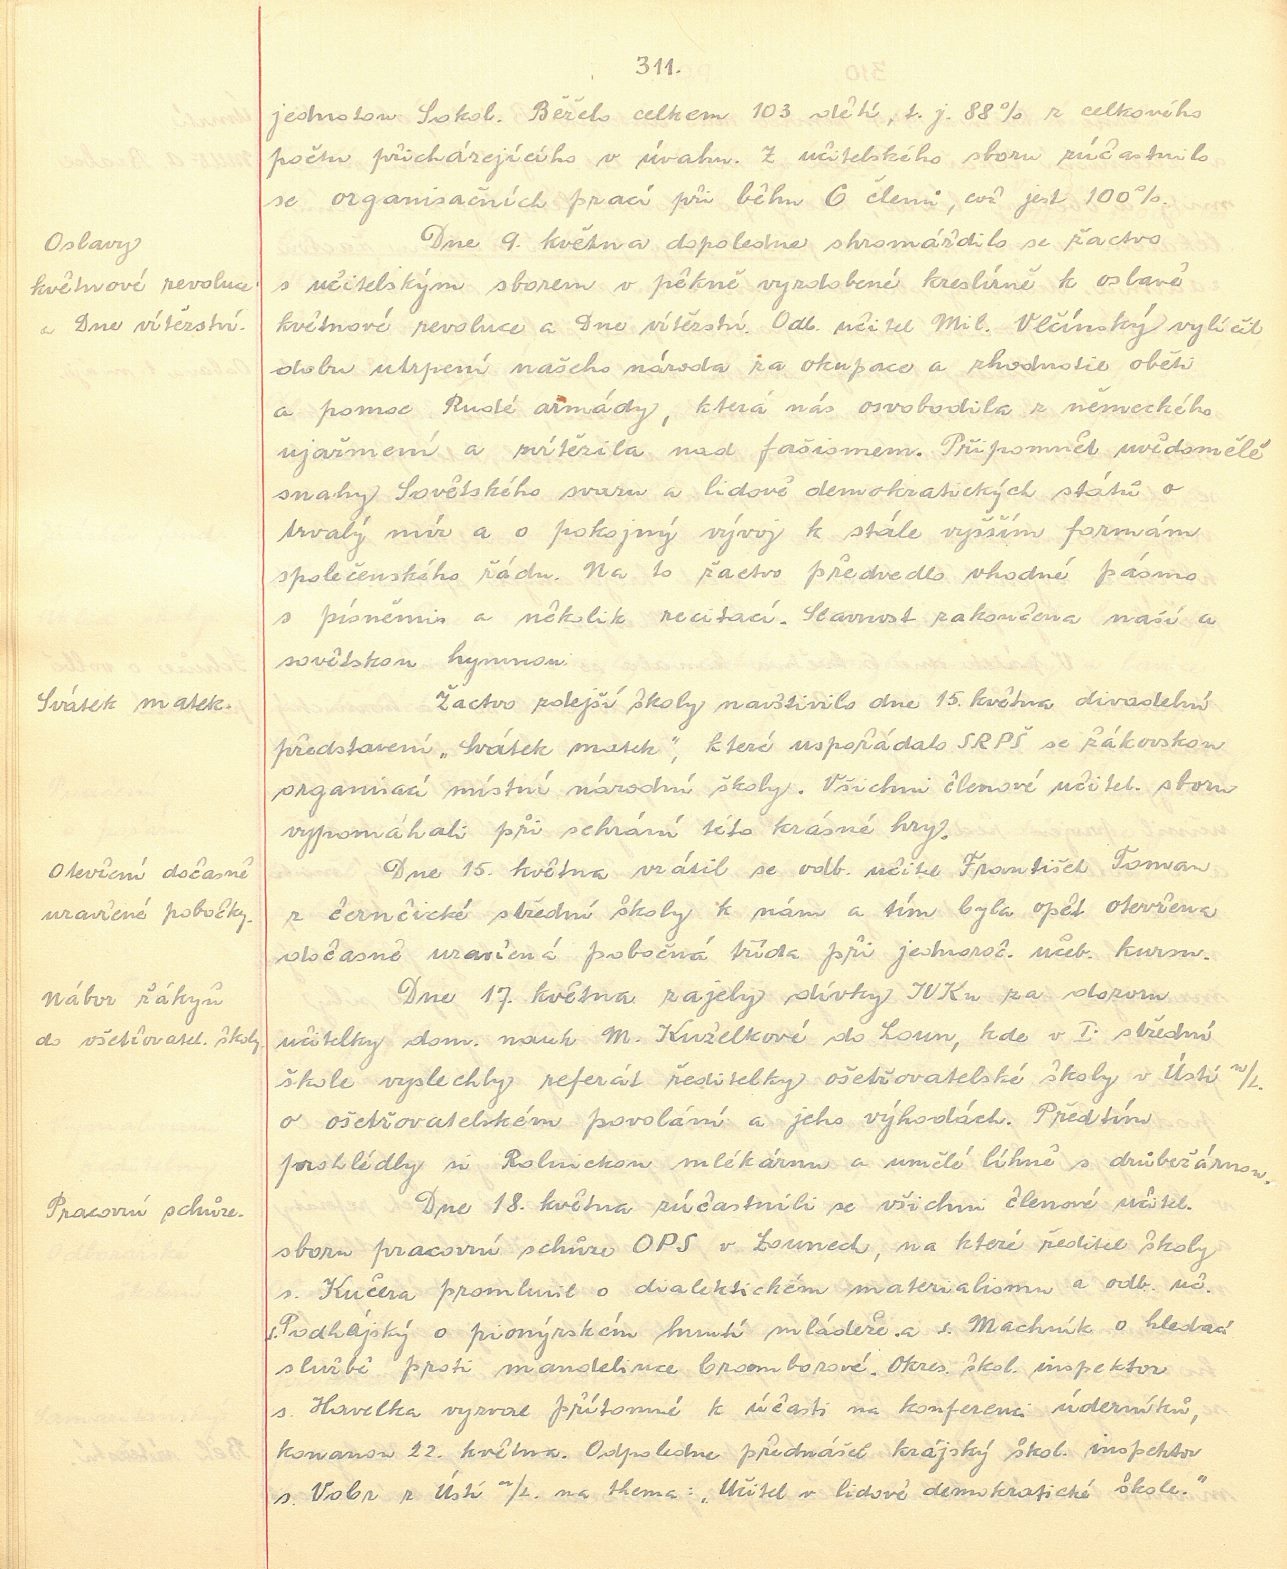 311.
jednotou Sokol. Běželo celkem 103 dětí, t. j. 88% z celkového
počtu přicházejícího v úvahu. Z učitelského sboru zúčastnilo
se organisačních prací při běhu 6 členů, což jest 100%.
Oslavy
květnové revoluce
a Dne vítězství.
Dne 9. května dopoledne shromáždilo se žactvo
s učitelským sborem v pěkně vyzdobené kreslírně k oslavě
květnové revoluce a Dne vítězství. Odb. učitel Mil. Vlčínský vylíčil
dobu utrpení našeho národa za okupace a zhodnotil oběti
a pomoc Rudé armády, která nás osvobodila z německého
ujařmení a zvítězila nad fašismem. Připomněl uvědomělé
snahy Sovětského svazu a lidově demokratických států o
trvalý mír a o pokojný vývoj k stále vyšším formám
společenského řádu. Na to žactvo předvedlo vhodné pásmo
s písněmi a několik recitací. Slavnost zakončena naší a
sovětskou hymnou.
Svátek matek.
Žactvo zdejší školy navštívilo dne 15. května divadelní
představení „Svátek matek", které uspořádalo SRPŠ se žákovskou
organisací místní národní školy. Všichni členové učitel. sboru
vypomáhali při sehrání této krásné hry.
Otevření dočasně
uzavřené pobočky.
Dne 15. května vrátil se odb. učitel František Toman
z černčické střední školy k nám a tím byla opět otevřena
dočasně uzavřená pobočná třída při jednoroč. učeb. kursu.
Nábor žákyň
do ošetřovatel. školy
Dne 17. května zajely dívky IVKu za dozoru
učitelky dom. nauk M. Kuželkové do Loun, kde v I. střední
škole vyslechly referát ředitelky ošetřovatelské školy v Ústí n/L.
o ošetřovatelském povolání a jeho výhodách. Předtím
prohlédly si Rolnickou mlékárnu a umělé líhně s drůbežárnou.
Pracovní schůze.
Dne 18. května zúčastnili se všichni členové učitel.
sboru pracovní schůze OPS v Lounech, na které ředitel školy
s. Kučera promluvil o dialektickém materialismu a odb. uč.
s. Podhájský o pionýrském hnutí mládeže a s. Machník o hledací
službě proti mandelince bramborové. Okres. škol. inspektor
s. Havelka vyzval přítomné k účasti na konferenci úderníků,
konanou 22. května. Odpoledne přednášel krajský škol. inspektor
s. Volr z Ústí n/L. na thema: „Učitel v lidově demokratické škole."